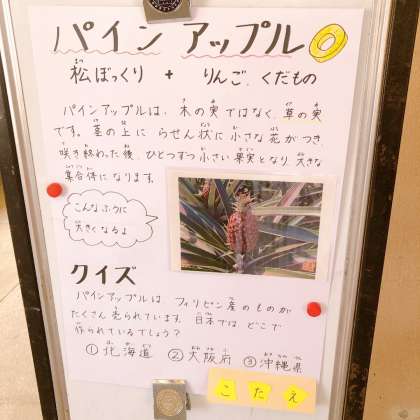 パイン アップル
松ぼっくり + りんご、くだもの
パインアップルは、木の実ではなく、草の実
です。茎の上に らせん状に小さな花がつき
咲き終わった後、ひとつずつ小さい果実となり大きな
集合体になります。
こんなふうに
大きくなるよ
クイズ
パインアップルは フィリピン産のものが
たくさん売られています。日本では どこで
作られているでしょう?
①北海道 ②大阪府 ③沖縄県
こたえ